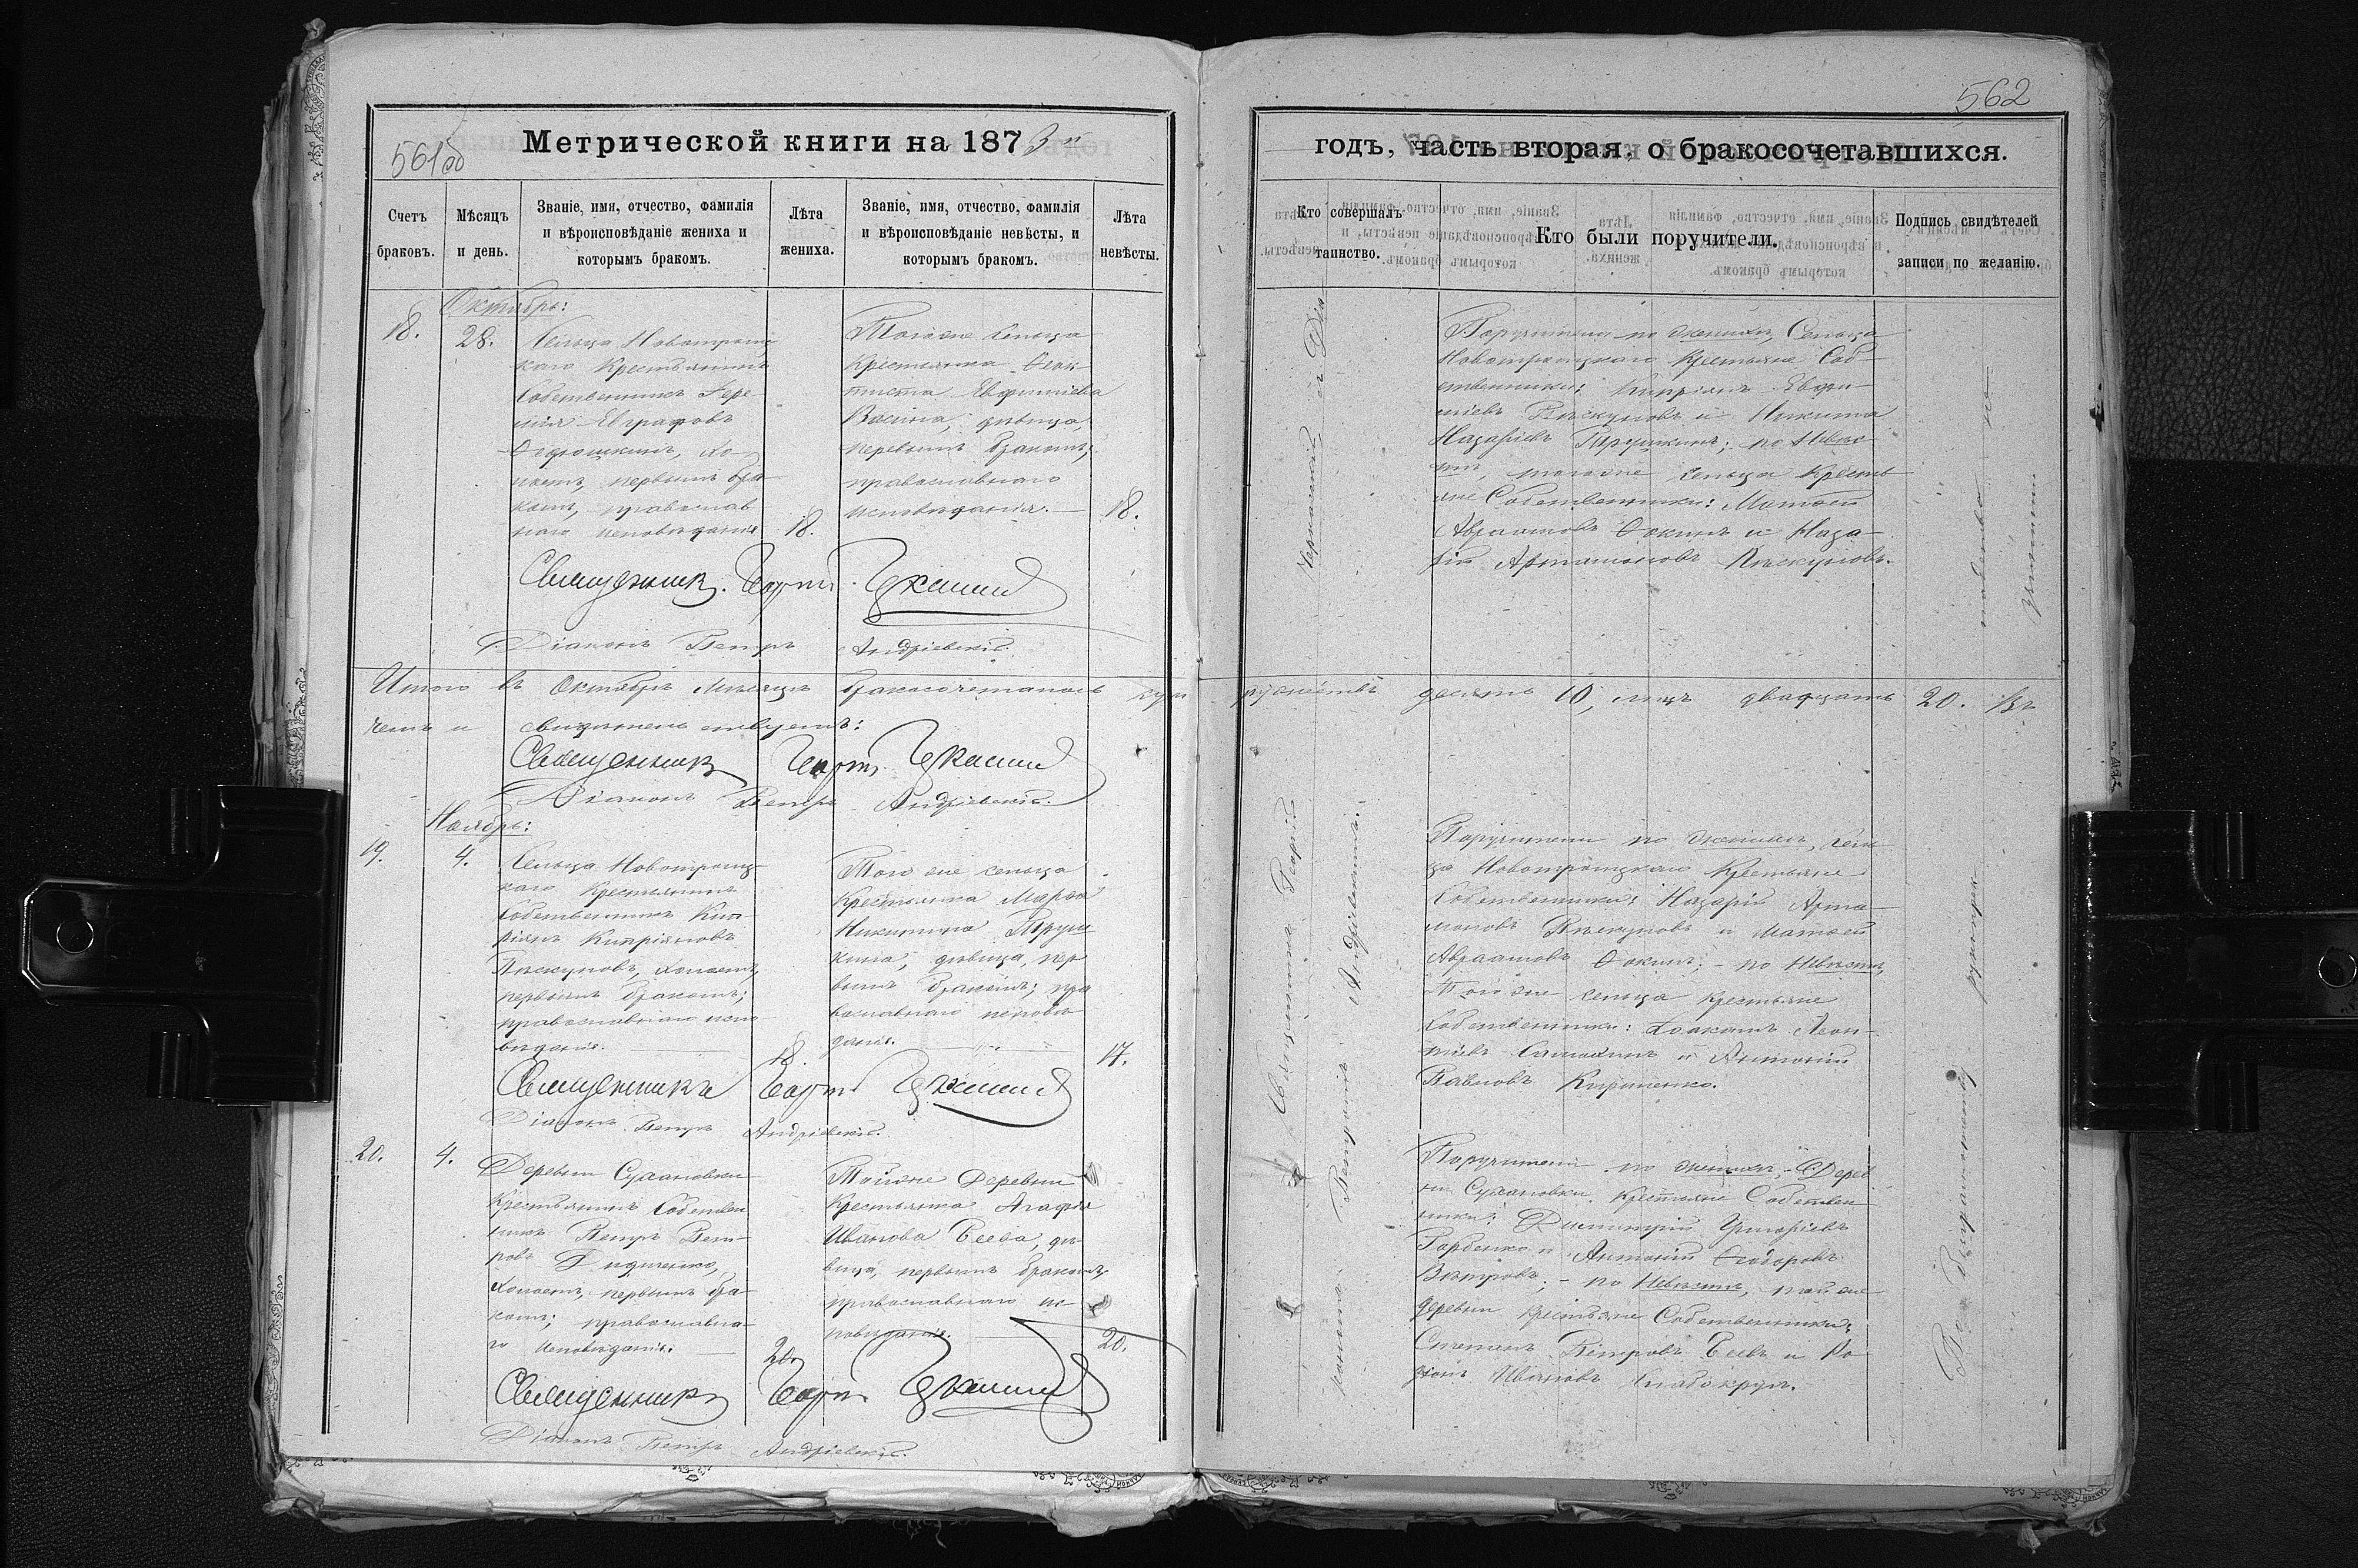 561об
Метрической книги на 1873й
Счетъ браковъ.
Мѣсяцъ и день.
Званіе, имя, отчество, фамилія
и вѣроисповѣданіе жениха и
которымъ бракомъ.
Лѣта жениха.
Званіе, имя, отчество, фамилія
и вѣроисповѣданіе невѣсты, и
которымъ бракомъ.
Лѣта невѣсты.
Октябрь:
18.
28.
Сельца Новотроиц
каго Крестьянинъ
Собственникъ Іере
мія Евграфовъ
Ѳедюшкинъ, хо-
лостъ, первымъ бра
комъ, православ
наго исповѣданія
18.
Того же сельца
Крестьянка Ѳеок-
тиста Евфиміева
дѣвица,
первымъ бракомъ;
православнаго
исповѣданія.
18.
Священникъ Георгій
Діаконъ Петръ Андріевскій.
Итого въ Октябрѣ мѣсяцѣ бракосочеталось суп
чемъ и свидѣтельствуемъ:
Священникъ Георгій
Діаконъ Петръ Андріевскій.
Ноябрь:
19.
4.
Сельца Новотроиц
каго Крестьянинъ
Собственникъ Кип-
ріянъ Кипріяновъ
Пискуновъ, холостъ,
первымъ бракомъ;
православнаго испо
вѣданія.
18.
Того же сельца
Крестьянка Марѳа
Никитина Труш
кина, дѣвица, пер
вымъ бракомъ; пра
вославнаго исповѣ
данія.
17.
Священникъ Георгій
Діаконъ Петръ Андріевскій.
20.
4.
Деревни Сухановки
Крестьянинъ Собствен
никъ Петръ Пет-
ровъ Диденко,
холостъ, первымъ бра
комъ; православна-
го исповѣданія.
20.
Той же Деревни
Крестьянка Агафія
Иванова Беева, дѣ-
вица, первымъ бракомъ,
православнаго ис-
повѣданія.
20.
Священникъ Георгій
Діаконъ Петръ Андріевскій.
562
годъ, часть вторая, о бракосочетавшихся.
Кто совершалъ таинство.
Кто были поручители.
Подпись свидѣтелей
записи по желанію.
Священникъ Георгій Черкасскій съ Діа-
кономъ Петромъ Андріевскимъ.
Поручители по женихѣ, Сельца
Новотроицкаго Крестьяне Соб-
ственники: Кипріянъ Евфи-
міевъ Пискуновъ и Никита
Назаріевъ Трушкинъ; по Невѣс-
тѣ, того же сельца Кресть
яне Собственники: Матѳей
Авраамовъ Ѳокинъ и Наза-
рій Артамоновъ Пискуновъ.
ружествъ десять 10, лицъ двадцать 20. Въ
Поручители по женихѣ, сель
ца Новотроицкаго Крестьяне
Собственники: Назарій Арта-
моновъ Пискуновъ и Матѳей
Авраамовъ Ѳокинъ; - по Невѣстѣ,
Того же сельца Крестьяне
Собственники: Іоакимъ Леон-
тіевъ и Антоній
Павловъ Кириченко.
Поручители по женихѣ, - Дерев
ни Сухановки Крестьяне Собствен
ники: Димитрій Григоріевъ
Горбенко и Антоній Ѳеодоровъ
Вѣтровъ; - по Невѣстѣ, той же
деревни Крестьяне Собственники;
Степанъ Петровъ Беевъ и Ро
діонъ Ивановъ
По безграмотству рукъ